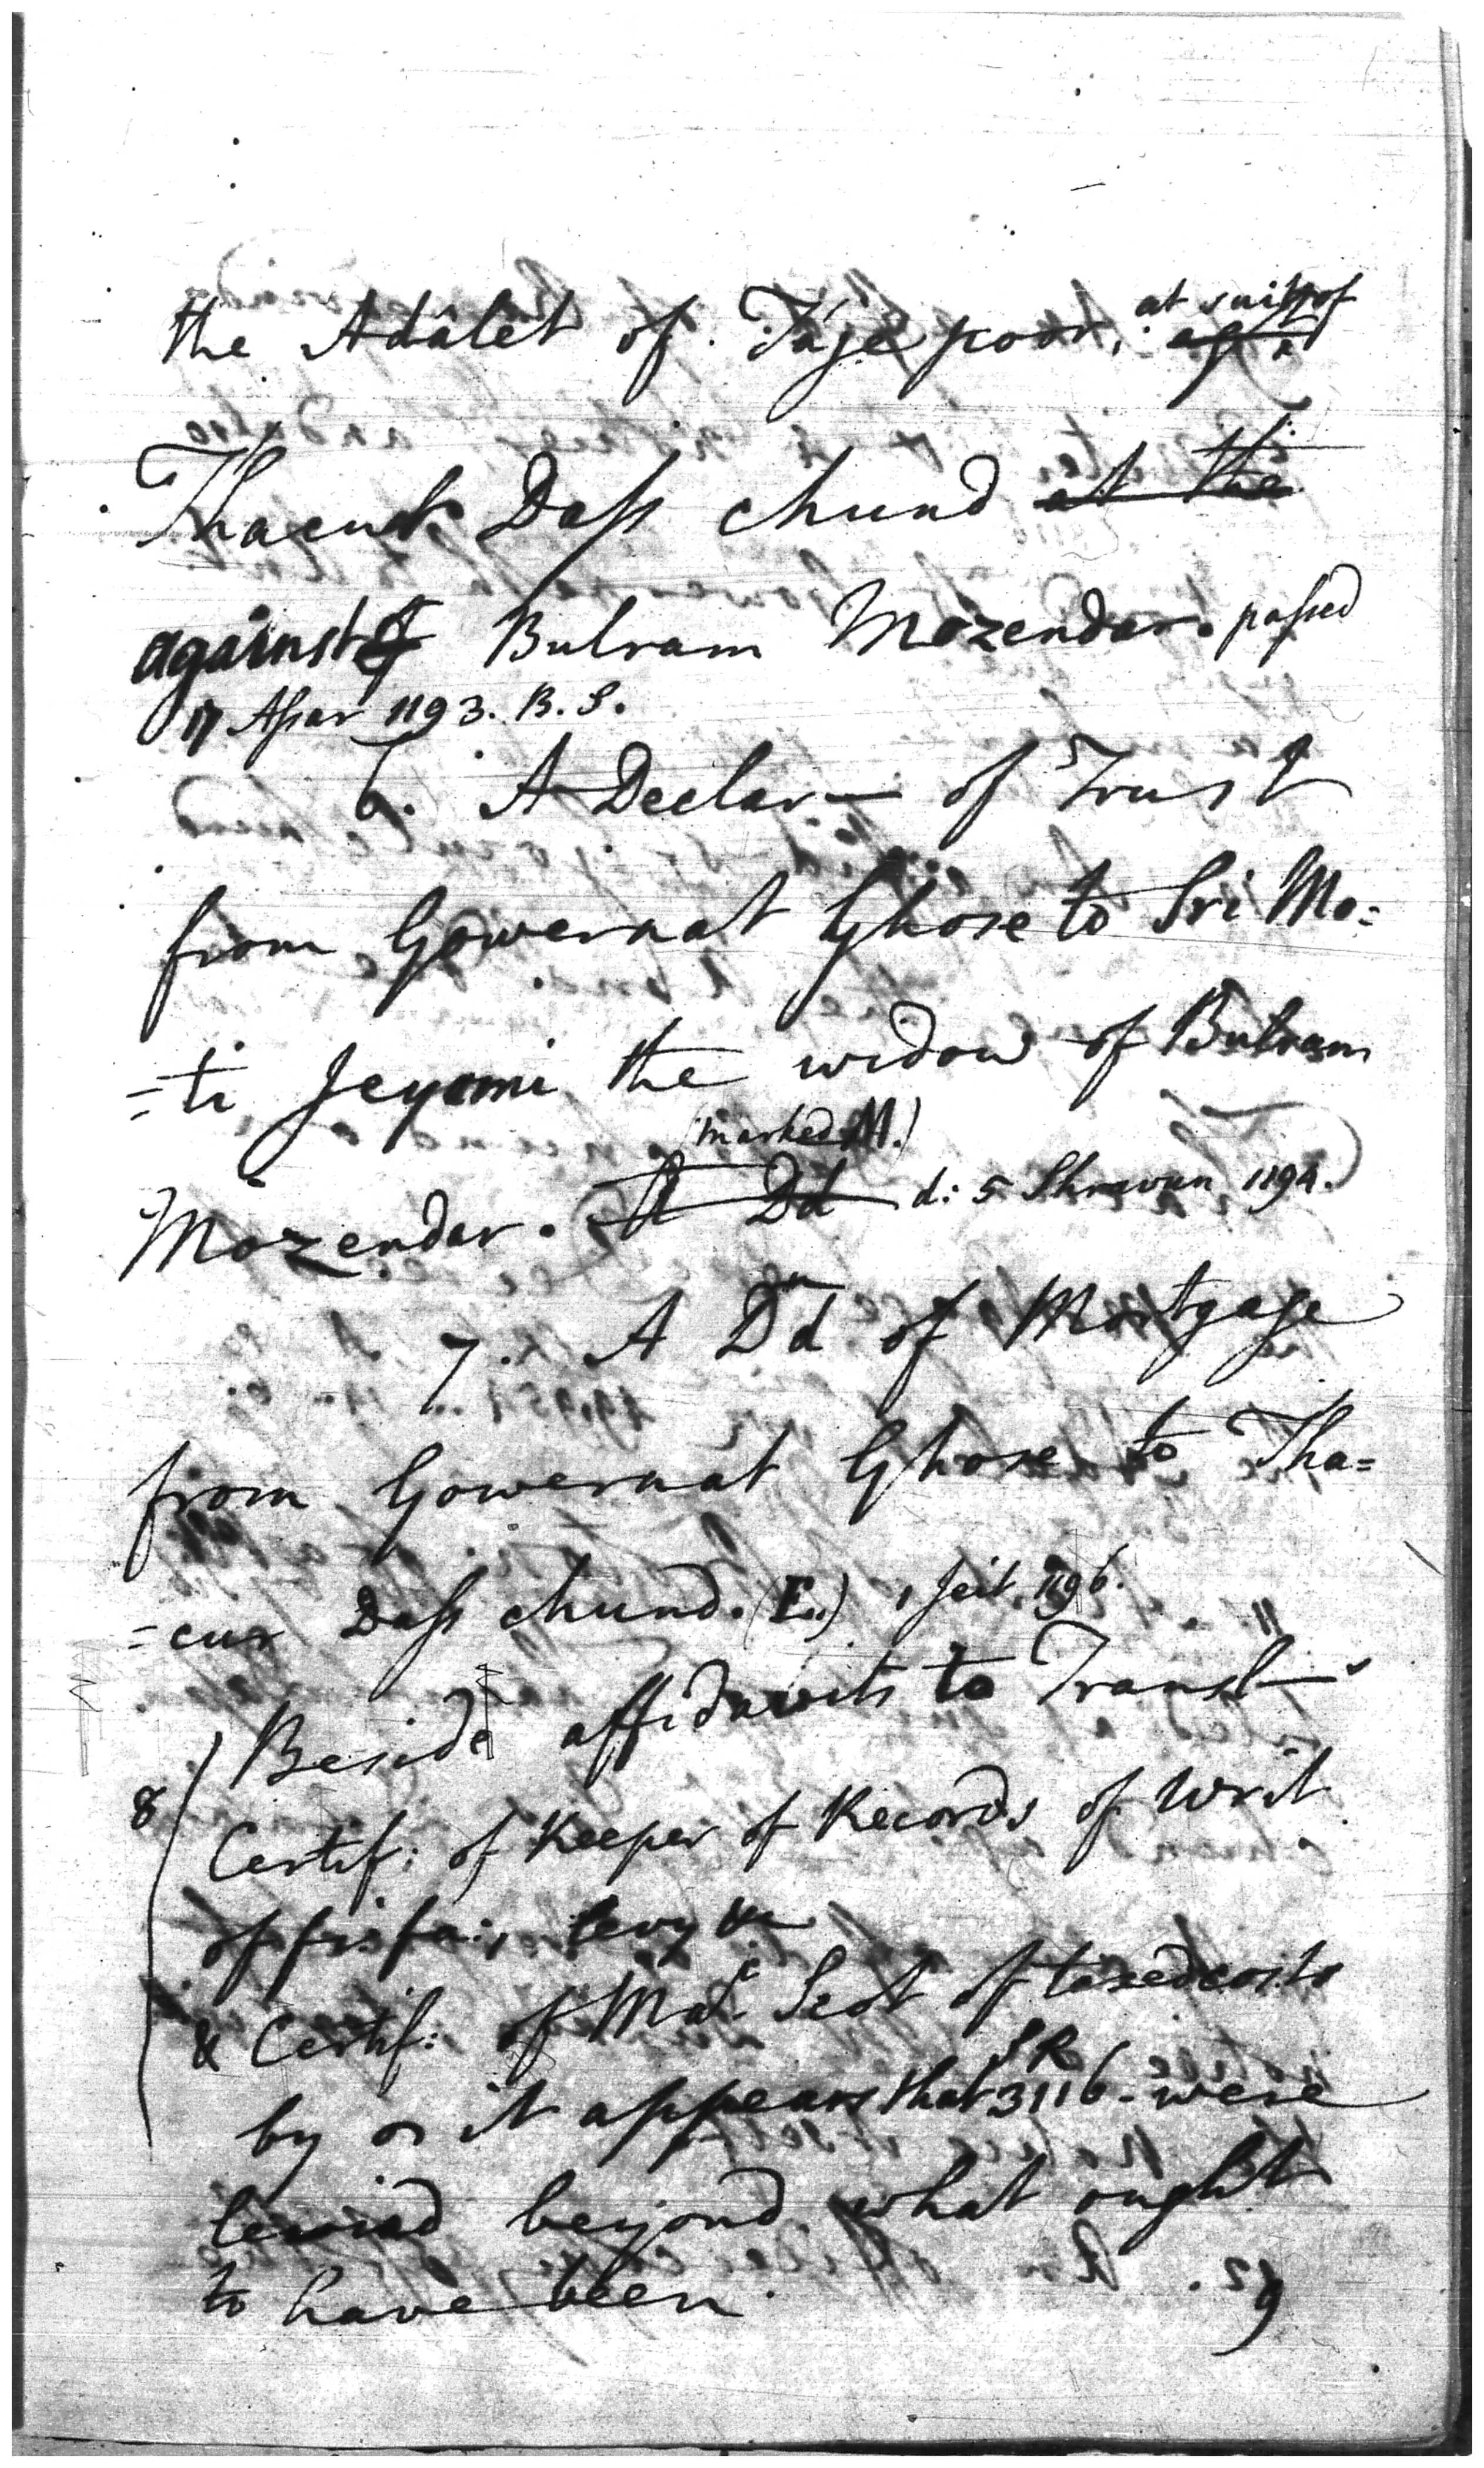 at suit of
the Adâlet of Tájepoor, agst
Thacur Dass chund at the
against of Bulram Mozendar. passed
17 Assar 1193. B. S.
6. A Declar— of Trust
from Gowernat Ghose to Sri Mo=
=ti Jeyomi the widow of Bulram
(marked M.)
Mozendar. A Dd d: 5 Shrawun 1194.
7. A Dd of Mortgage
from Gowernat Ghose to Tha=
=cur Dass chund. (E..) 1 Jeit. 1196.
Beside affidavits to Transl—s
8 Certif: of Keeper of Records of Writ
of fi: fa:, levy &c
& Certif: of Mar Scot of taxed costs
S R
by it appears that 3116 - were
levied beyond what ought
to have been.
9